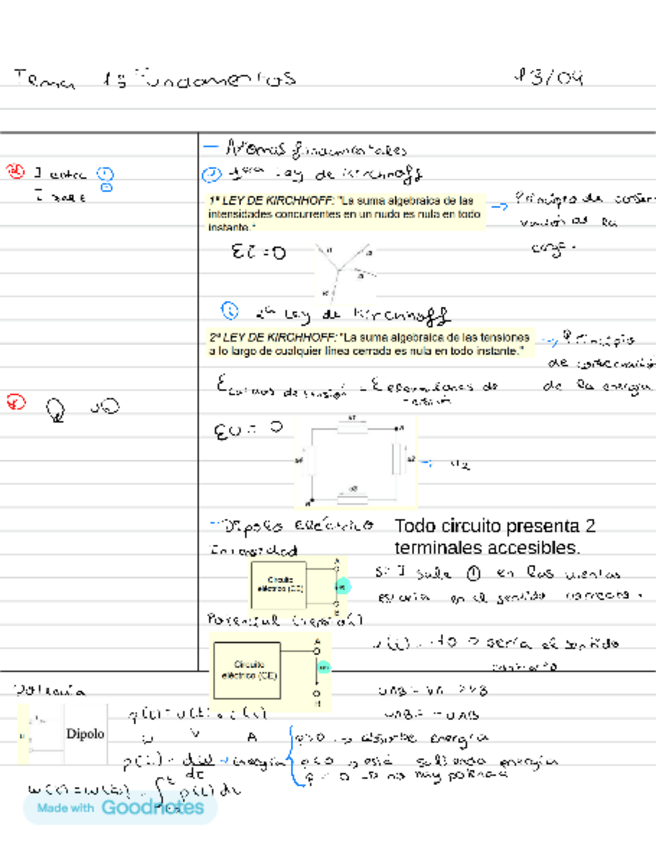 Tema 1: Fundamentos 13/09
- Axiomas fundamentales
I entra
I sale
1era Ley de Kirchhoff
1ª LEY DE KIRCHHOFF: "La suma algebraica de las
intensidades concurrentes en un nudo es nula en todo
instante."
→ Principio de conser-
vación de la
carga.
Σi = 0
2ª Ley de Kirchhoff
2ª LEY DE KIRCHHOFF: "La suma algebraica de las tensiones
a lo largo de cualquier línea cerrada es nula en todo instante."
→ Principio
de conservación
de la energía
de tensión = Σ elevaciones de
tensión
Σu = 0
→ u2
- Dipolo eléctrico
Todo circuito presenta 2
terminales accesibles.
Intensidad
Circuito
eléctrico (CE)
A
B
Si I sale en las cuentas
estaría en el sentido correcto.
Potencial (tensión)
Circuito
eléctrico (CE)
A
B
sería el sentido
Potencia
Dipolo
p(t) = u(t) · i(t)
W V A
p>0 → absorbe energía
p(t) = dw/dt → energía
p<0 → está saliendo energía
p=0 → no hay potencia
p(t) dt
Made with Goodnotes